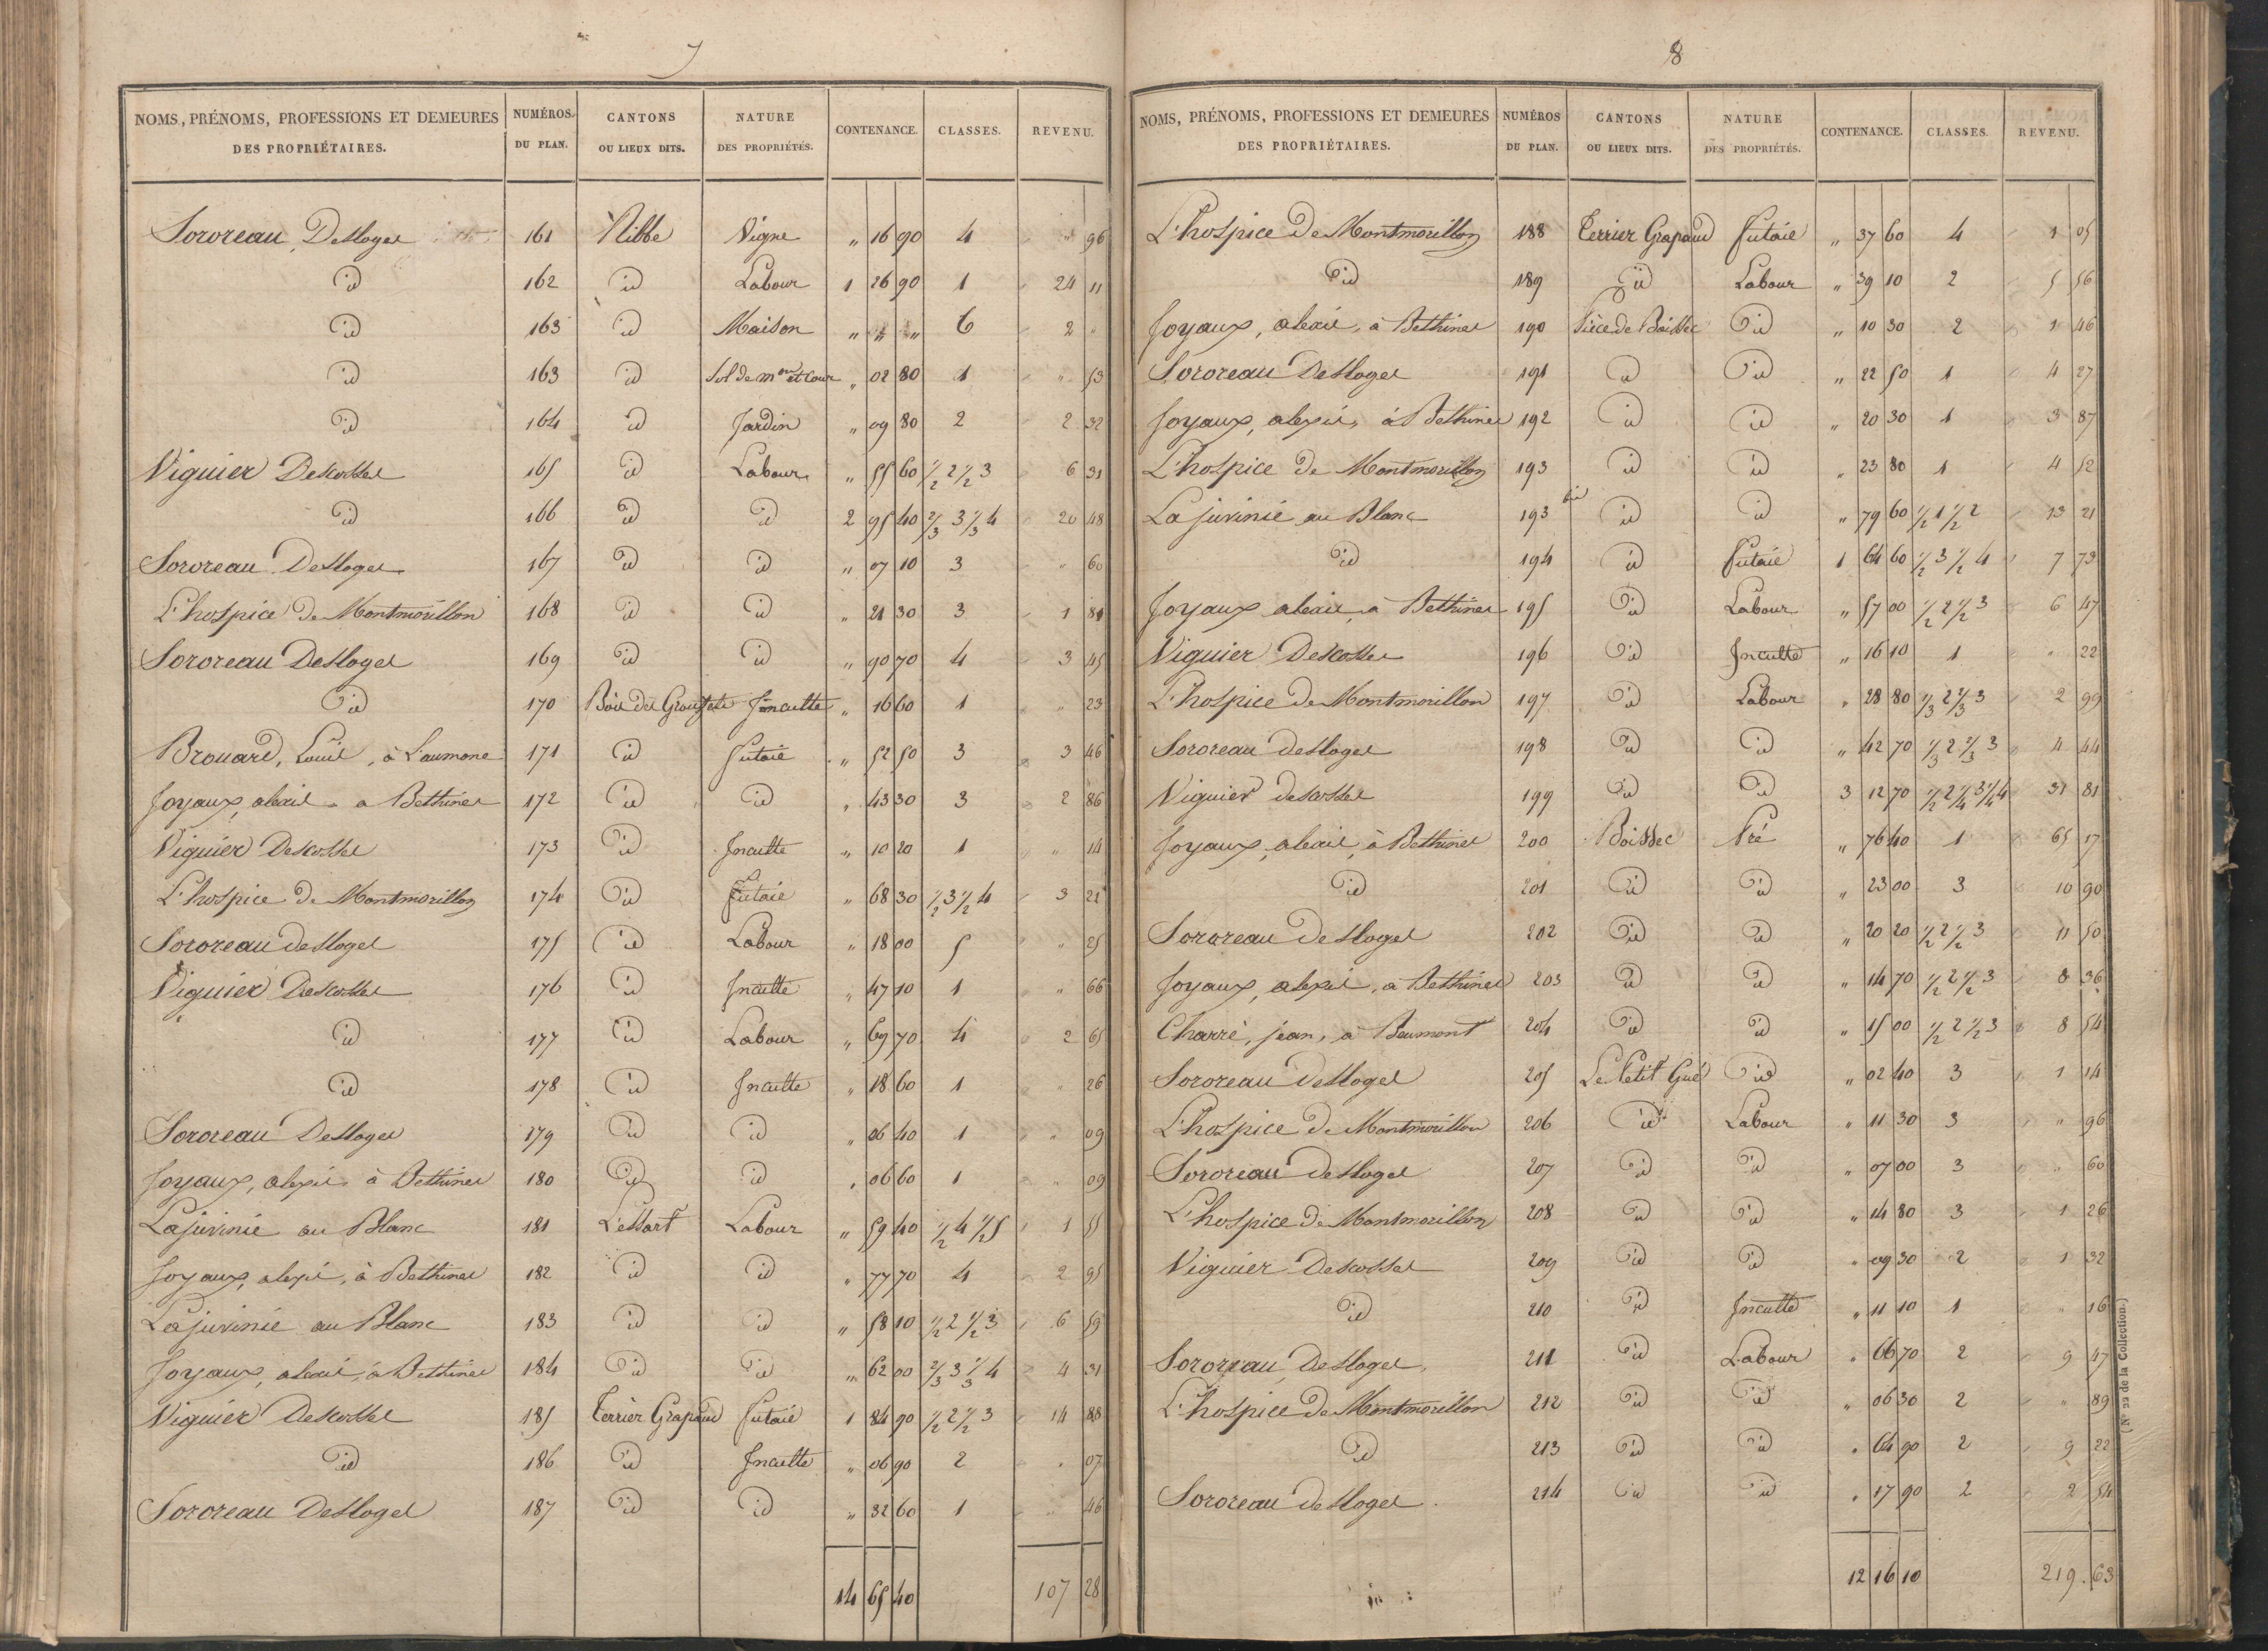 7
NOMS, PRÉNOMS, PROFESSIONS ET DEMEURES DES PROPRIÉTAIRES. NUMÉROS DU PLAN. CANTONS OU LIEUX DITS. NATURE DES PROPRIÉTÉS. CONTENANCE. CLASSES. REVENU.
Sororeau, Desloges 161 Ribbe Vigne " 16 90 4 " 96
id 162 id Labour 1 26 90 1 24 11
id 163 id Maison " " " 6 2 "
id 163 id Sol de mon et Cour " 02 80 1 " 53
id 164 id Jardin " 09 80 2 2 32
Viguier Descosses 165 id Labour " 55 60 1/2 2 1/2 3 6 31
id 166 id id 2 95 40 2/3 3 1/3 4 20 48
Sororeau Desloges 167 id id " 07 10 3 " 60
L'hospice de Montmorillon 168 id id " 21 30 3 1 81
Sororeau Desloges 169 id id " 90 70 4 3 45
id 170 Bois des Inculte " 16 60 1 " 23
Brouard, Louis, à L'aumone 171 id Futaie " 52 50 3 3 46
Joyaux, alexis, a Bethines 172 id id " 43 30 3 2 86
Viguier Descosses 173 id Inculte " 10 20 1 " 14
L'hospice de Montmorillon 174 id Futaie " 68 30 1/2 3 1/2 4 3 21
Sororeau desloges 175 id Labour " 18 00 5 " 25
Viguier Descosses 176 id Inculte " 47 10 1 " 66
id 177 id Labour " 69 70 4 2 65
id 178 id Inculte " 18 60 1 " 26
Sororeau Desloges 179 id id " 06 40 1 " 09
Joyaux, alexis à Bethines 180 id id " 06 60 1 " 09
Lajuvinie au Blanc 181 L'essart Labour " 59 40 1/2 4 1/2 5 1 55
Joyaux, alexis, à Bethines 182 id id " 77 70 4 2 95
Lajuvinie au Blanc 183 id id " 58 10 1/2 2 1/2 3 6 59
Joyaux, alexis, à Bethines 184 id id " 62 00 2/3 3 1/3 4 4 31
Viguier Descosses 185 Terrier Grapaud Futaie 1 84 90 1/2 2 1/2 3 14 88
id 186 id Inculte " 06 90 2 " 07
Sororeau Desloges 187 id id " 32 60 1 " 46
14 65 40 107 28
8
NOMS, PRÉNOMS, PROFESSIONS ET DEMEURES DES PROPRIÉTAIRES. NUMÉROS DU PLAN. CANTONS OU LIEUX DITS. NATURE DES PROPRIÉTÉS. CONTENANCE. CLASSES. REVENU.
L'hospice de Montmorillon 188 Terrier Grapaud Futaie " 37 60 4 1 05
id 189 id Labour " 39 10 2 5 56
Joyaux, alexis, à Bethines 190 Pièce de Boissec id " 10 30 2 1 46
Sororeau Desloges 191 id id " 22 50 1 4 27
Joyaux, alexis, à Bethines 192 id id " 20 30 1 3 87
L'hospice de Montmorillon 193 id id " 23 80 1 4 52
Lajuvinie au Blanc 193 bis id id " 79 60 1/2 1 1/2 2 13 21
id 194 id Futaie 1 64 60 1/2 3 1/2 4 7 73
Joyaux alexis, a Bethines 195 id Labour " 57 00 1/2 2 1/2 3 6 47
Viguier Descosses 196 id Inculte " 16 10 1 " 22
L'hospice de Montmorillon 197 id Labour " 28 80 1/3 2 2/3 3 2 99
Sororeau desloges 198 id id " 42 70 1/3 2 2/3 3 4 44
Viguier descosses 199 id id 3 12 70 1/2 2 1/4 3 1/4 4 31 81
Joyaux, alexis, à Bethines 200 Boissec Pré " 76 40 1 65 17
id 201 id id " 23 00 3 10 90
Sororeau Desloges 202 id id " 20 20 1/2 2 1/2 3 11 50
Joyaux, alexis, a Bethines 203 id id " 14 70 1/2 2 1/2 3 8 36
Charré, jean, à Beumont 204 id id " 15 00 1/2 2 1/2 3 8 54
Sororeau Desloges 205 Le Petit Gué id " 02 40 3 1 14
L'hospice de Montmorillon 206 id Labour " 11 30 3 " 96
Sororeau Desloges 207 id id " 07 00 3 " 60
L'hospice de Montmorillon 208 id id " 14 80 3 1 26
Viguier Descosses 209 id id " 09 30 2 1 32
id 210 id Inculte " 11 10 1 " 16
Sororeau, Desloges 211 id Labour " 66 70 2 9 47
L'hospice de Montmorillon 212 id id " 06 30 2 " 89
id 213 id id " 64 90 2 9 22
Sororeau desloges 214 id id " 17 90 2 2 54
12 16 10 219.63
(N° 22 de la Collection.)